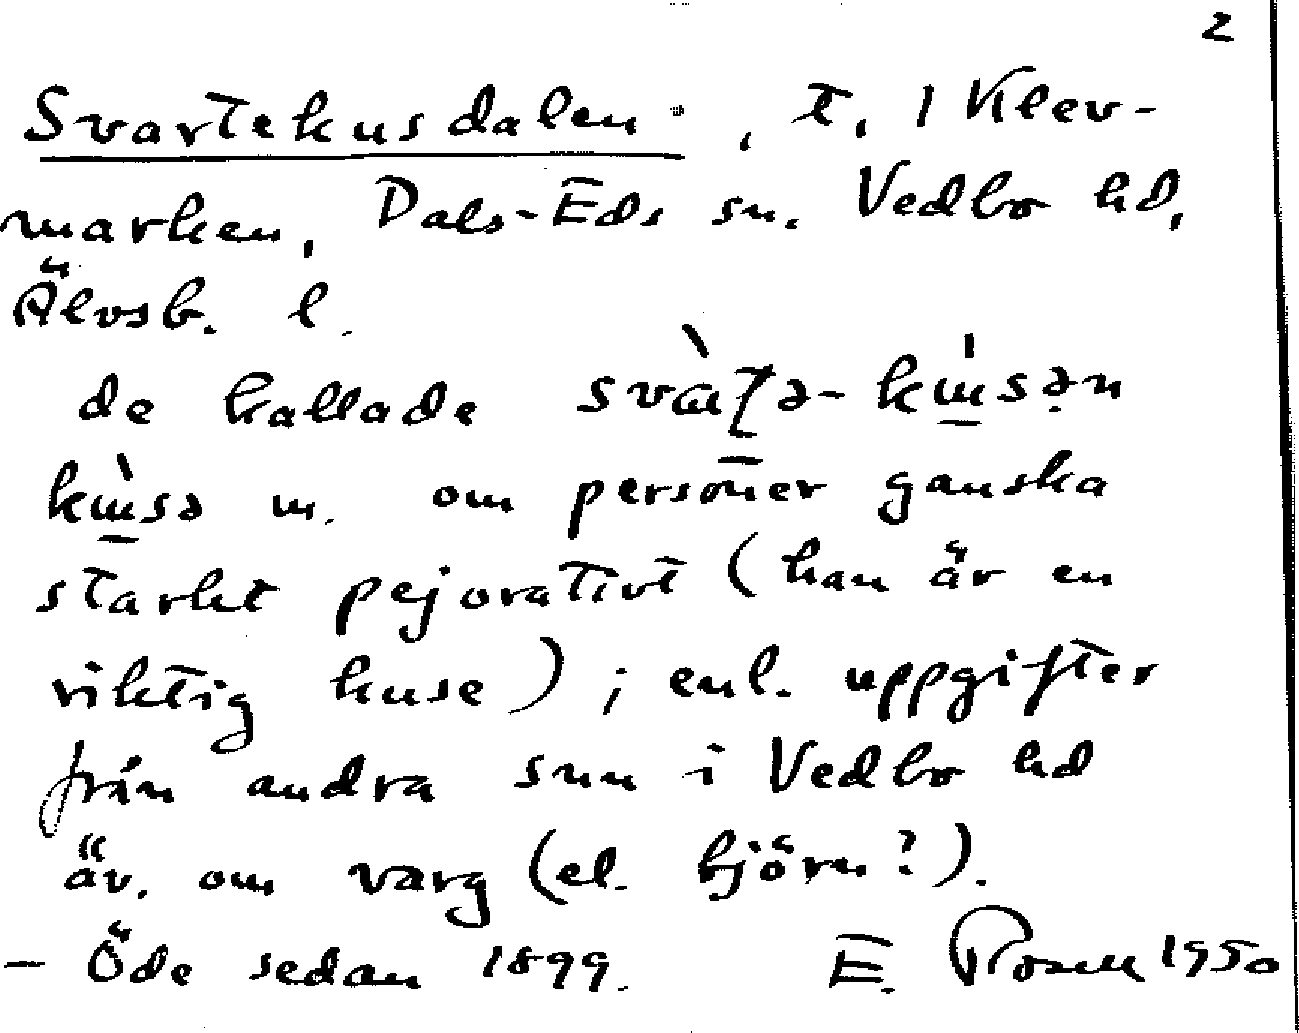 2
Svartekusdalen, t. i Klev-
marken, Dals-Eds sn. Vedbo hd,
Älvsb. l.
de kallade
m. om personer ganska
starkt pejorativt (han är en
viktig kuse); enl. uppgifter
från andra snn i Vedbo hd
äv. om varg (el. björn?).
- Öde sedan 1899. E. Rosell 1950